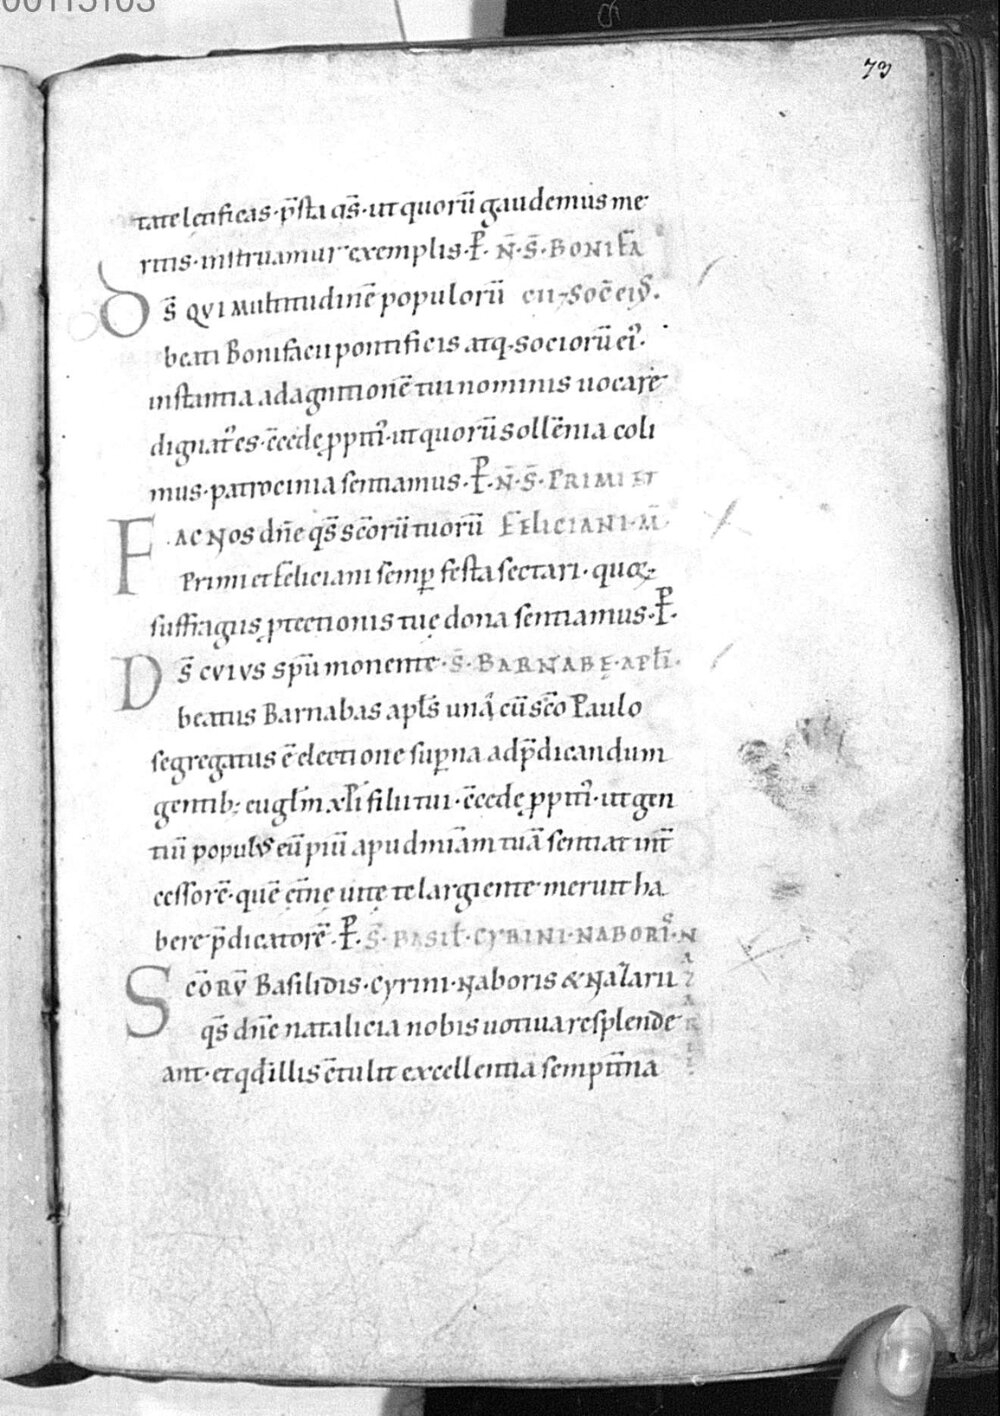 00115103
73
tate letificas· p̄sta q̄s· ut quorū gaudemus me
ritis· instruamur exemplis· P̄· N̄· S̄· BONIFA
D̄s QVI Multitudinē populorū CII ⁊ SOC̄ EIꝰ·
beati Bonifacii pontificis atq· sociorū eiꝰ·
instantia ad agnitionē tui nominis uocare
dignatꝰ es· c̄cede ꝓpitiꝰ· ut quorū sollēnia coli
mus· patrocinia sentiamus· P̄· N̄· S̄· PRIMI ET
FAC NOS dn̄e q̄s sc̄orū tuorū FELICIANI· M̄·
Primi et feliciani semꝑ festa sectari· quoꝝ
suffragiis ꝓtectionis tuę dona sentiamus· P̄·
D̄s CVIVS sp̄u monente· S̄· BARNABĘ· APLI·
beatus Barnabas apl̄s unā cū sc̄o Paulo
segregatus ē electione suꝑna ad p̄dicandum
gentib; eugl̄m xp̄i filii tui· c̄cede ꝓpitiꝰ· ut gen
tiū populus eū piū apud mīam tuā sentiat int̄
cessorē· quē et̄ne uite te largiente meruit ha
bere p̄dicatorē· P̄· S̄· BASIL̄· CYRINI· NABORI· N
SC̄ORV̄ Basilidis· Cyrini· Naboris & Nazarii AZARII
q̄s dn̄e natalicia nobis uotiua resplende
ant· et qd̄ illis c̄tulit excellentia sempit̄na